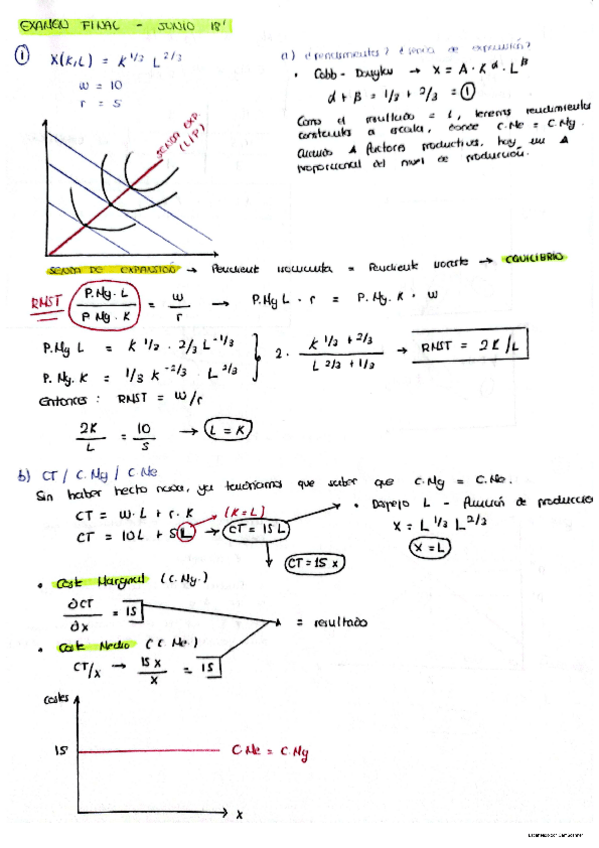 EXAMEN FINAL - JUNIO 18'
① X(K,L) = K^1/3 L^2/3
w = 10
r = 5
SENDA EXP. (L/P)
a) ¿rendimientos? ¿senda de expansión?
• Cobb - Douglas → X = A · K^α · L^β
α + β = 1/3 + 2/3 = ①
Como el resultado = 1, tenemos rendimientos
constantes a escala, donde C.Me = C.Mg.
Cuando Δ factores productivos, hay un Δ
proporcional del nivel de producción.
SENDA DE EXPANSIÓ → Pendiente isocuanta = Pendiente isocoste → EQUILIBRIO
RMST P.Mg.L / P.Mg.K = w / r → P.Mg L · r = P.Mg.K · w
P.Mg L = K^1/3 · 2/3 L^-1/3
P.Mg.K = 1/3 K^-2/3 · L^2/3
2 · K^1/3+2/3 / L^2/3+1/3 → RMST = 2K/L
Entonces : RMST = w/r
2K / L = 10 / 5 → L = K
b) CT / C.Mg / C.Me
Sin haber hecho nada, ya tendríamos que saber que C.Mg = C.Me.
CT = w·L + r·K (K=L)
CT = 10L + 5L → CT = 15L
• Despejo L - función de produccion
X = L^1/3 L^2/3
X = L
CT = 15x
• Coste Marginal (C.Mg.)
∂CT / ∂x = 15
= resultado
• Coste Medio (C.Me.)
CT/x → 15x / x = 15
costes
15
C.Me = C.Mg
x